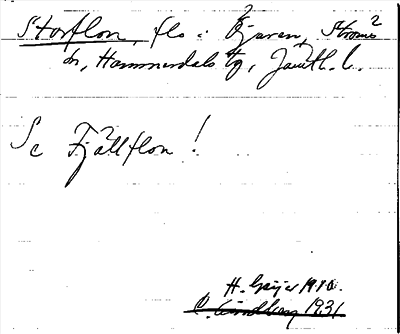 Storflon, flo i Fjären, Ströms
sn, Hammerdals tg, Jämtl. l.
Se Fjällflon!
H. Geijer 1910.
C. Lindberg 1931